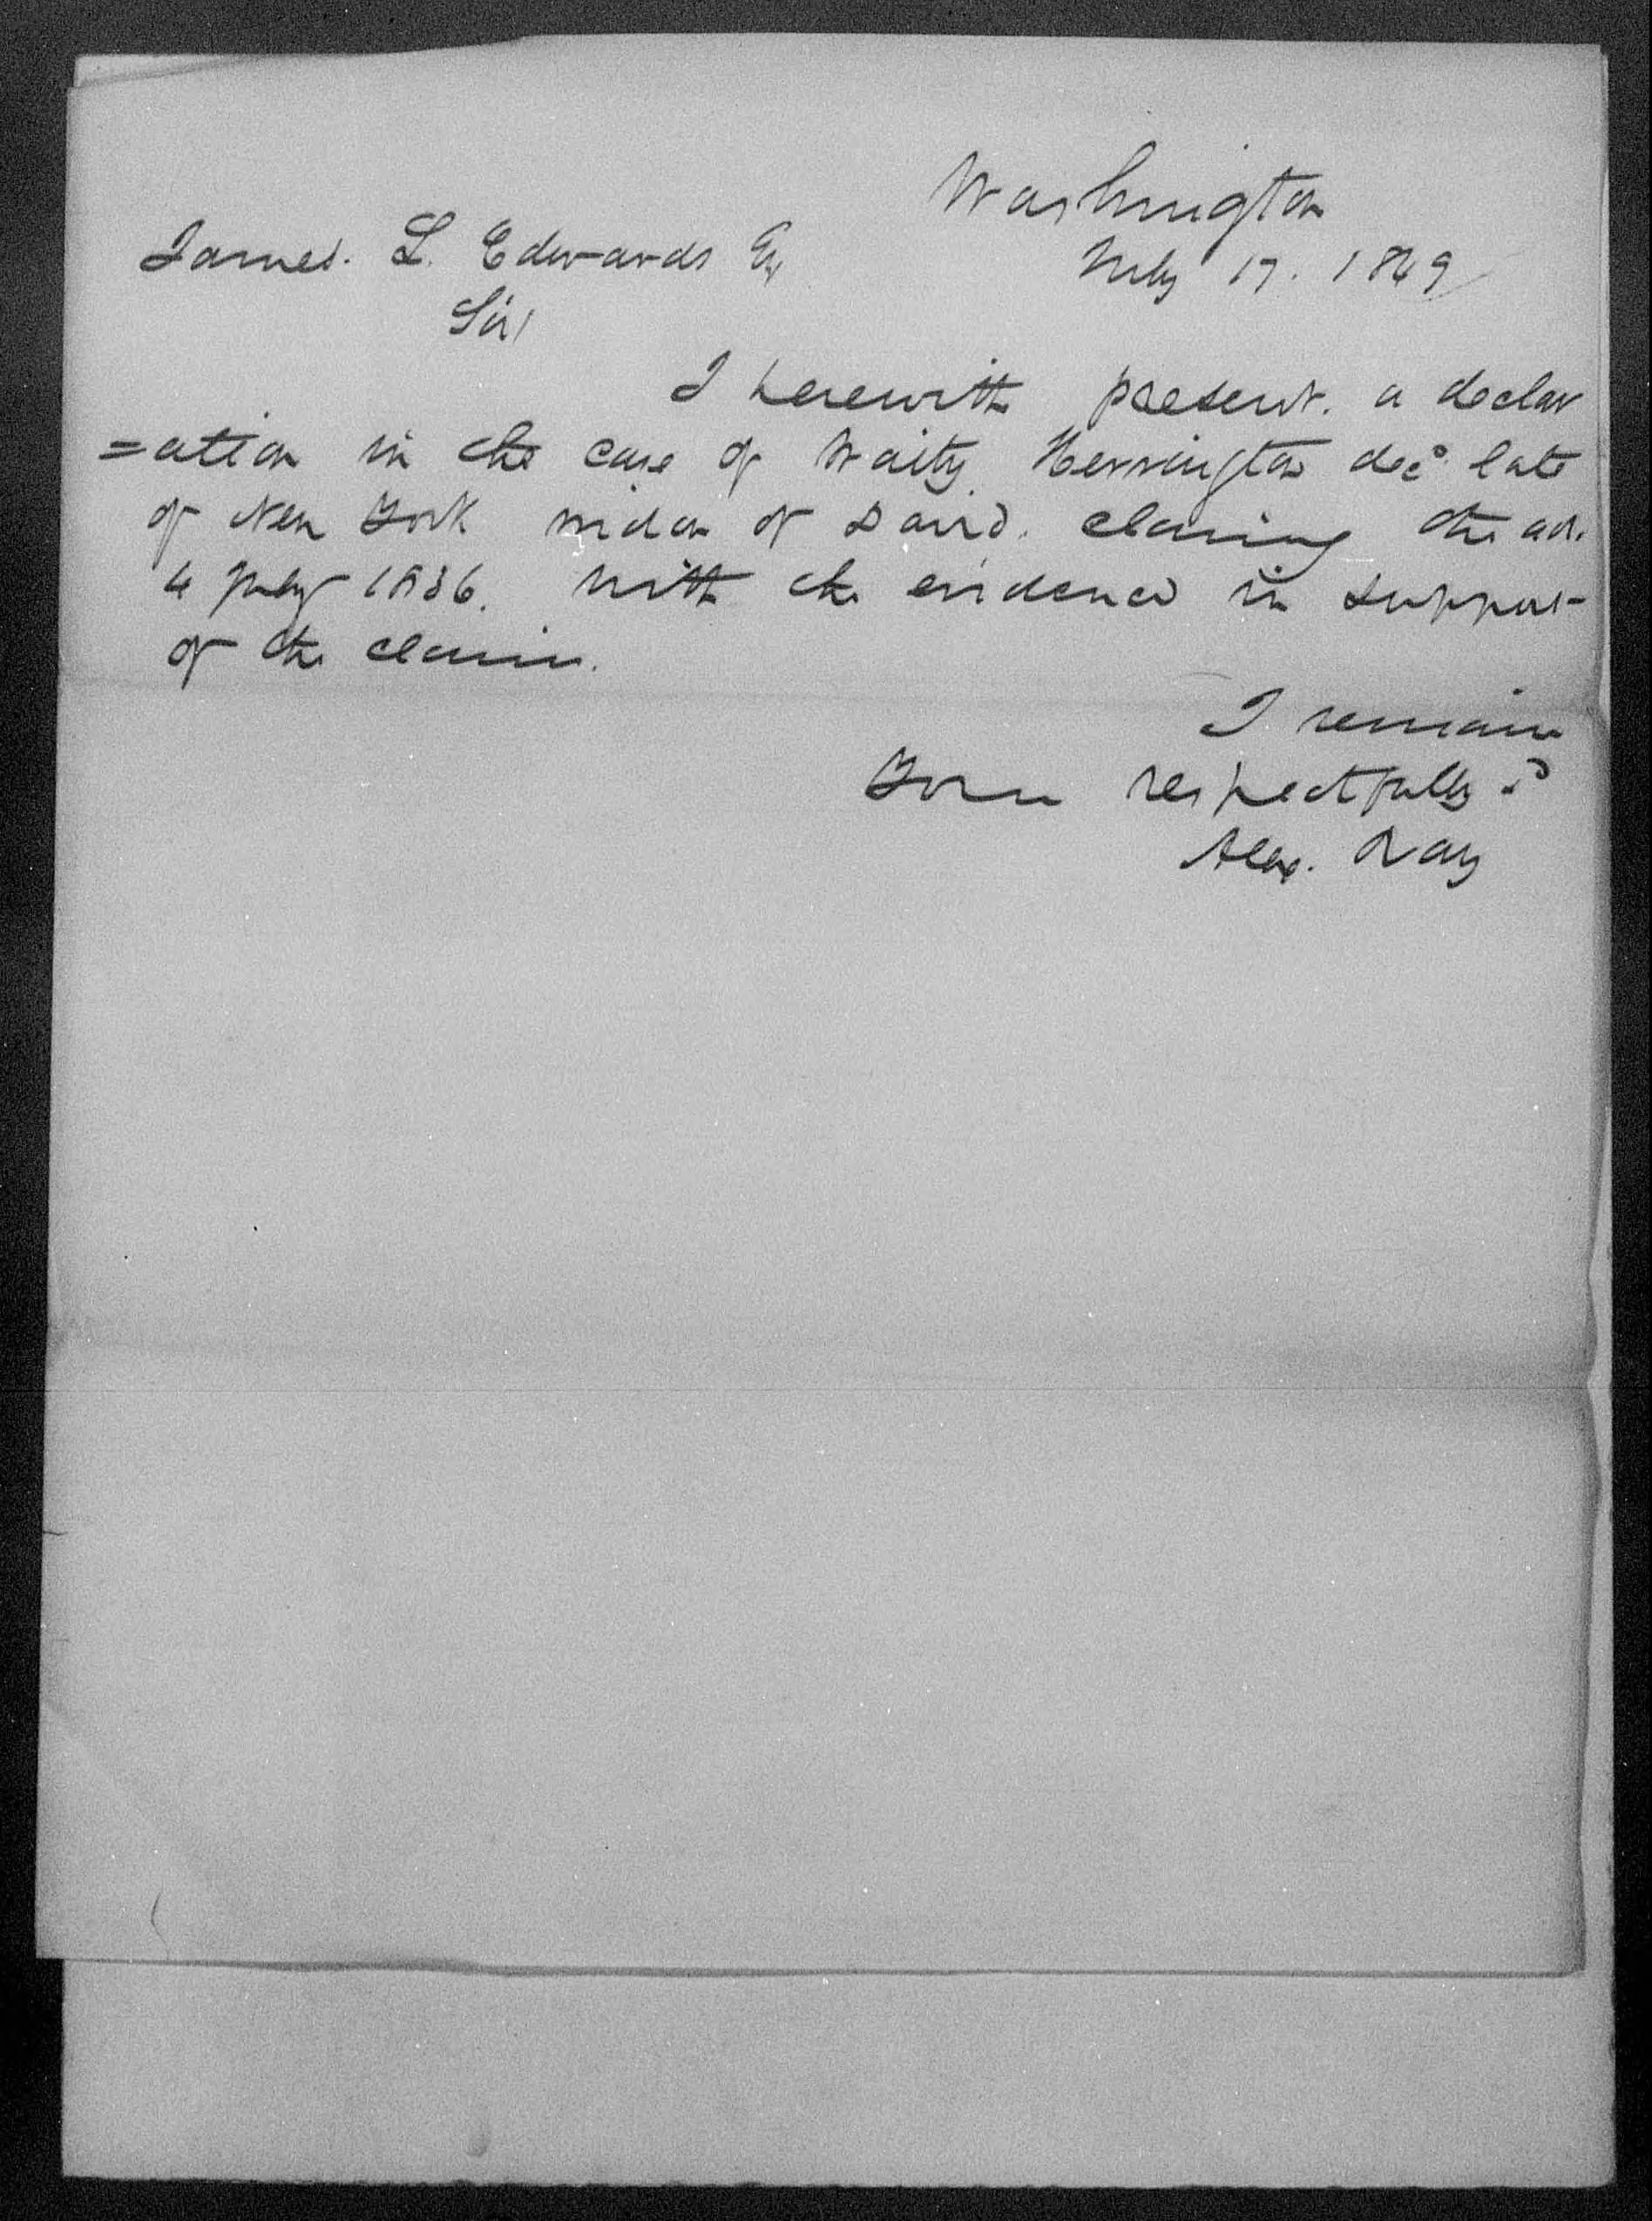 Washington
July 17. 1849
James. L. Edwards Esq
Sir,
I herewith present. a declar
=ation in the case of Waity Herrington dec.d late
of New York widow of David. claiming the act.
4 July 1836. with the evidence in support
of the claim.
I remain
Yours respectfully
Alex. Ray